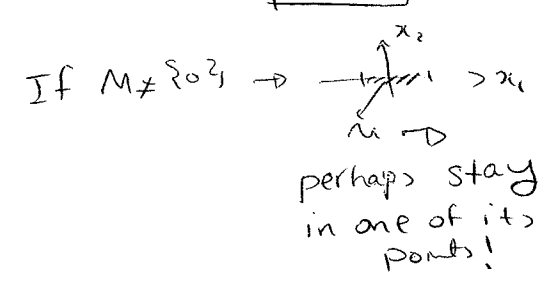 x₂
If M ≠ {0}, → > x₁
M →
perhaps stay
in one of its
points!